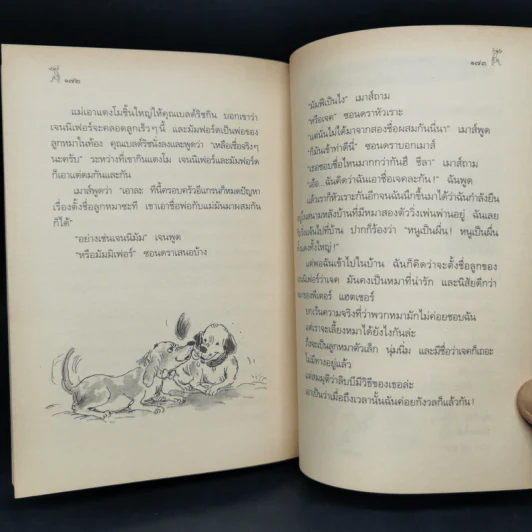 ๑๗๒
แม่เอาแตงโมชิ้นใหญ่ให้คุณเบลด์ริชกิน บอกเขาว่า
เจนนิเฟอร์จะคลอดลูกเร็วๆ นี้ และมัมฟอร์ดเป็นพ่อของ
ลูกหมาในท้อง คุณเบลด์ริชนั่งลงและพูดว่า "เหลือเชื่อจริงๆ
นะครับ" ระหว่างที่เขากินแตงโม เจนนิเฟอร์และมัมฟอร์ด
ก็เอาแต่ดมกันและกัน
เมาส์พูดว่า "เอาละ ทีนี้ครอบครัวอีแกรนก็หมดปัญหา
เรื่องตั้งชื่อลูกหมาซะที เขาเอาชื่อพ่อกับแม่มันมาผสมกัน
ก็ได้"
"อย่างเช่นเจนนีมัม" เจนพูด
"หรือมัมมิเฟอร์" ซอนดราเสนอบ้าง
๑๗๓
"มัมฟี่เป็นไง" เมาส์ถาม
"หรือเจค" ซอนดราหัวเราะ
"แต่นั่นไม่ได้มาจากสองชื่อผสมกันนี่นา" เมาส์พูด
"ก็มันเข้าท่าดีนี่" ซอนดราบอกเมาส์
"เธอชอบชื่อไหนมากกว่ากันฮึ ชีลา" เมาส์ถาม
"เอ้อ..ฉันคิดว่าฉันเอาชื่อเจคละกัน!" ฉันพูด
แล้วเราก็หัวเราะกันอีกจนฉันนึกขึ้นมาได้ว่ากำลังยืน
อยู่ในสนามหลังบ้านที่มีหมาสองตัววิ่งเพ่นพ่านอยู่ ฉันเลย
วิ่งไปที่บ้าน ปากก็ร้องว่า "หนูเป็นผื่น! หนูเป็นผื่น
แดงทั้งใหญ่!"
แต่พอฉันเข้าไปในบ้าน ฉันก็คิดว่าจะตั้งชื่อลูกของ
เจนนิเฟอร์ว่าเจค มันคงเป็นหมาที่น่ารัก และนิสัยดีกว่า
หมาของพีเตอร์ แฮตเชอร์
ยกเว้นความจริงที่ว่าพวกหมามักไม่ค่อยชอบฉัน
แต่เราจะเลี้ยงหมาได้ยังไงกันล่ะ
ถึงจะเป็นลูกหมาตัวเล็ก นุ่มนิ่ม และมีชื่อว่าเจคก็เถอะ
ไม่มีทางอยู่แล้ว
แต่สมมุติว่าลิบบีมีวิธีของเธอล่ะ
เอาเป็นว่าเมื่อถึงเวลานั้นฉันค่อยกังวลก็แล้วกัน!